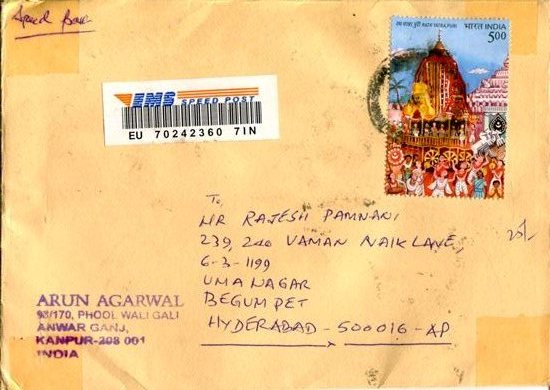 Speed Post
रथ यात्रा, पुरी RATH YATRA, PURI
भारत INDIA
500
EMS SPEED POST
EU 70242360 7IN
To,
MR RAJESH PAMNANI
239, 240 VAMAN NAIK LANE,
6-3-1199
UMA NAGAR
BEGUMPET
HYDERABAD - 500016 - AP
ARUN AGARWAL
93/170, PHOOL WALI GALI
ANWAR GANJ,
KANPUR-208 001
INDIA